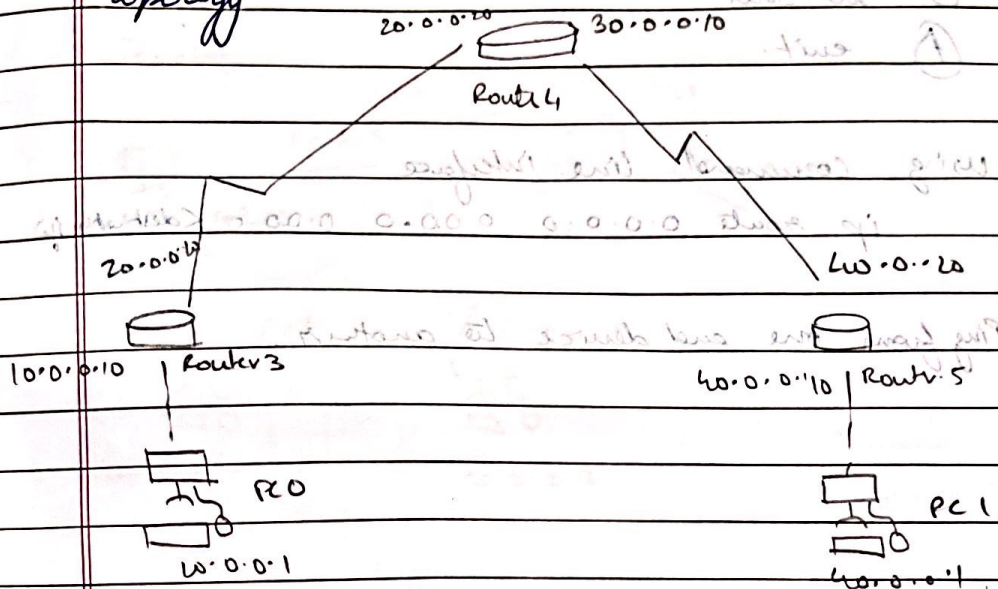 topology
20.0.0.20
30.0.0.10
Route 4
20.0.0.10
40.0..20
10.0.0.10
Router 3
40.0.0.10
Routr.5
PC0
PC 1
10.0.0.1
40.0.0.1